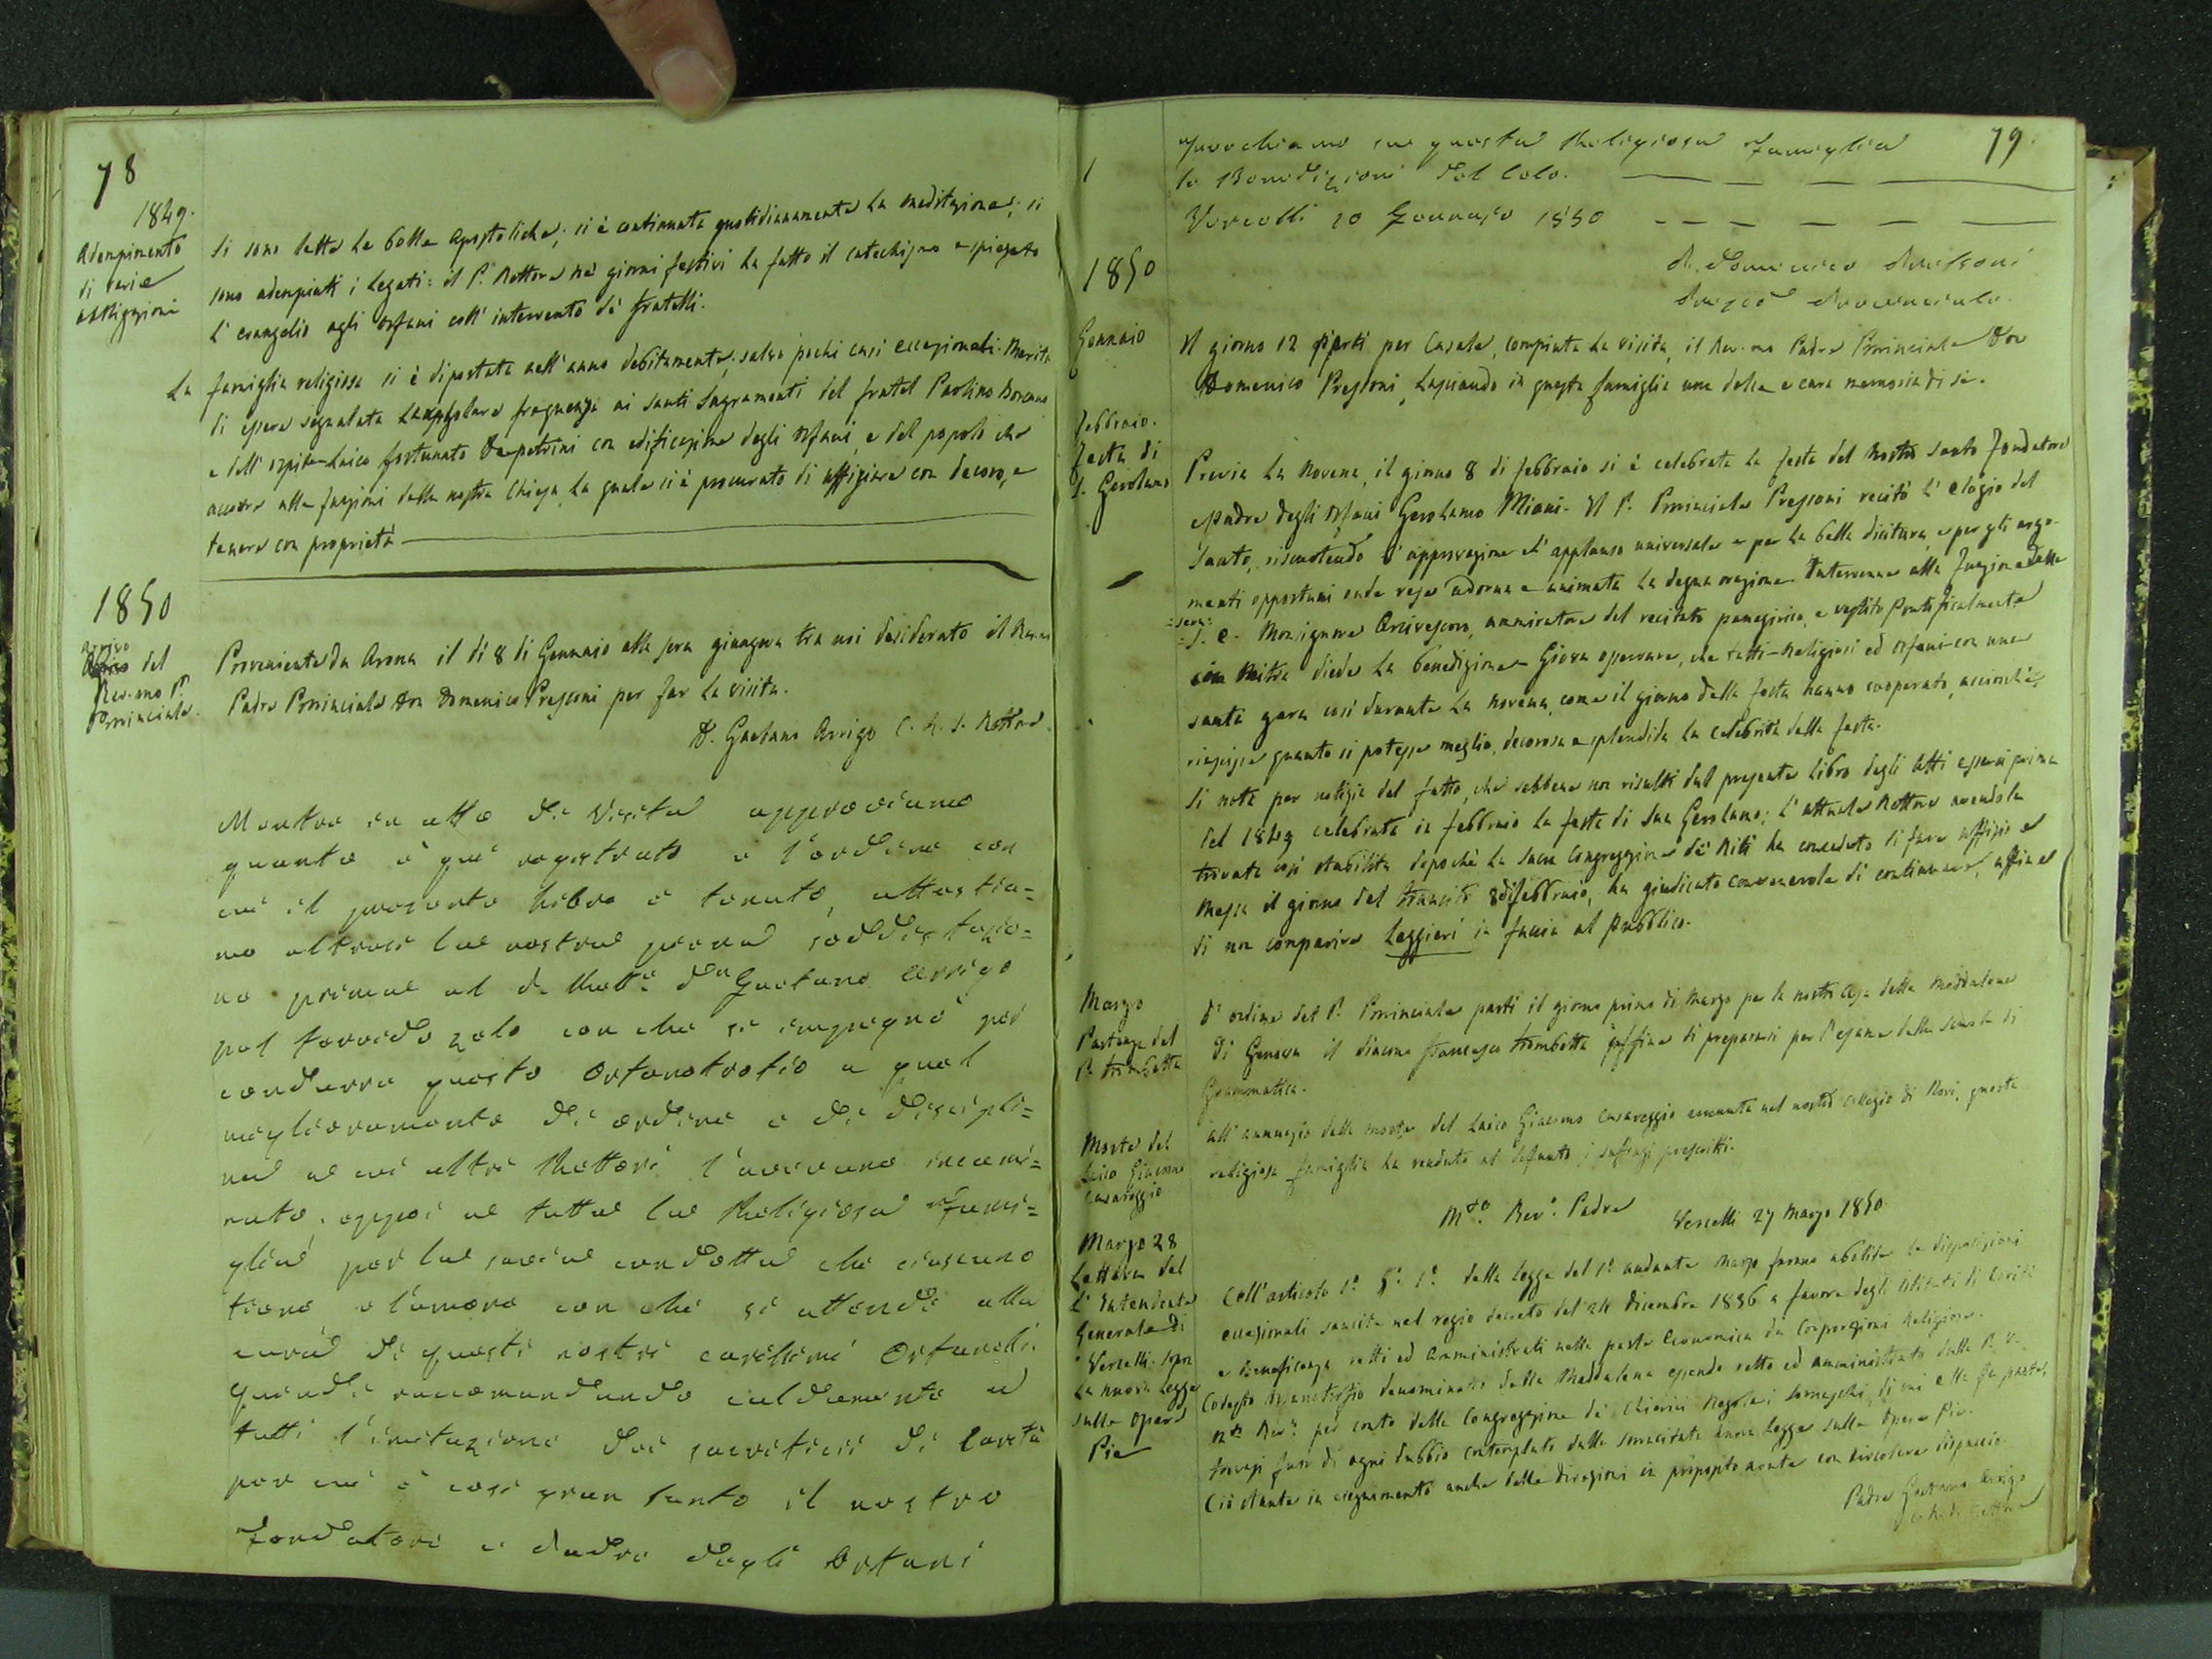 78
1849.
Adempimento
di varie
obbligazioni
Si sono lette le bolle Apostoliche; si è continuata quotidianamente la meditazione; si
sono adempiuti i legati: il P. Rettore ne' giorni festivi ha fatto il catechismo e spiegato
l'evangelio agli orfani coll'intervento de' fratelli.
La famiglia religiosa si è diportata nell'anno debitamente, salvo pochi casi eccezionali. Merita
di essere segnalata la esemplare frequenza ai santi Sagramenti del fratel Paolino
e dell'ospite laico fortunato Depetrini con edificazione degli orfani, e del popolo che
accorre alle funzioni della nostra Chiesa, la quale si è procurato di uffiziare con decoro, e
tenere con proprietà
1850
Arrivo
del
Rev.mo P.
Provinciale.
Proveniente da Arona il dì 8 di Gennaio alla sera giungeva tra noi desiderato il Rev.mo
Padre Provinciale Don Domenico Pressoni per far la visita.
D. Gaetano Arrigo C. R. S. Rettore
Mentre in atto di Visita approviamo
quanto è quì registrato e l'ordine con
cui il presente Libro è tenuto, attestia=
mo altresì la nostra piena soddisfazio=
ne prima al P. Rett.e Dn Gaetano Arrigo
pel fervido zelo con che si impegnò per
condurre questo Orfanotrofio a quel
miglioramento di ordine e di discipli=
na a cui altri Rettori l'avevano incami=
nato, eppoi a tutta la Religiosa Fami=
glia per la savia condotta che ciascuno
tiene, e l'amore con che si attende alla
cura di questi nostri carissimi Orfanelli
Quindi raccomandando caldamente a
tutti l'imitazione dei sacrificii di Carità
per cui è così gran Santo il nostro
Fondatore e Padre degli Orfani
79.
invochiamo su questa Religiosa Famiglia
le Benedizioni del Cielo.
Vercelli 10 Gennajo 1850
D. Domenico Pressoni
Prep.o Provinciale.
1850
Gennaio
Il giorno 12 partì per Casale, compiuta la visita, il Rev.mo Padre Provinciale Don
Domenico Pressoni, lasciando in questa famiglia una dolce e cara memoria di sè.
Febbraio.
Festa di
S. Girolamo
Previa la Novena, il giorno 8 di febbraio si è celebrata la festa del Nostro Santo fondatore
e Padre degli orfani Gerolamo Miani. Il P. Provinciale Pressoni recitò l'elogio del
Santo, riscuotendo l'approvazione e l'applauso universale e per la bella dicitura, e per gli argo-
menti opportuni onde rese adorna e animata la degna orazione. Intervenne alla funzione della
=sera=
S. E. Monsignore Arcivescovo, ammiratore del recitato panegirico, e vestito Pontificalmente
con Mitra diede la benedizione. Giova osservare, che tutti-Religiosi ed orfani-con una
santa gara così durante la novena, come il giorno della festa hanno cooperato, acciocchè
riuscisse quanto si potesse meglio, decorosa e splendida la celebrità della festa.
Si nota per notizia del fatto, che sebbene non risulti dal presente libro degli Atti essersi prima
del 1849 celebrata in febbraio la festa di San Gerolamo; l'attuale Rettore avendola
trovata così stabilita dopochè la Sacra Congregazione de' Riti ha conceduto di fare uffizio e
Messa il giorno del transito 8 di febbraio, ha giudicato convenevole di continuare, affine
di non comparire leggieri in faccia al Pubblico.
Marzo
Partenza del
P. Trombetta
D'ordine del P. Provinciale partì il giorno primo di Marzo per la nostra Casa della Maddalena
di Genova il diacono Francesco Trombetta affine di prepararsi per l'esame della scuola di
Grammatica.
Morte del
laico Giacomo
Casareggio
All'annunzio della morte del laico Giacomo Casareggio avvenuta nel nostro Collegio di Novi, questa
religiosa famiglia ha renduto al defunto i suffragi prescritti.
Marzo 28
Lettera del
l'Intendente
Generale di
Vercelli sopra
la nuova legge
sulle opere
Pie
M.to Rev.o Padre
Vercelli 27 Marzo 1850
Coll'articolo 1.o §.o 1.o della legge del 1.o andante Marzo furono abolite le disposizioni
eccezionali sancite nel regio decreto del 24 dicembre 1836 a favore degli Istituti di Carità
e Beneficenza retti ed Amministrati nella parte Economica da Corporazioni Religiose.
Codesto Orfanotrofio denominato della Maddalena essendo retto ed amministrato dalla P. V.
M.to Rev.a per conto della Congregazione de' Chierici Regolari Somaschi, di cui ella fa parte,
trovasi fuor di ogni dubbio contemplato dalla surricitata nuova legge sulle Opere Pie.
Ciò stante in seguimento anche delle direzioni in proposito avute con circolare dispaccio
Padre Gaetano Arrigo